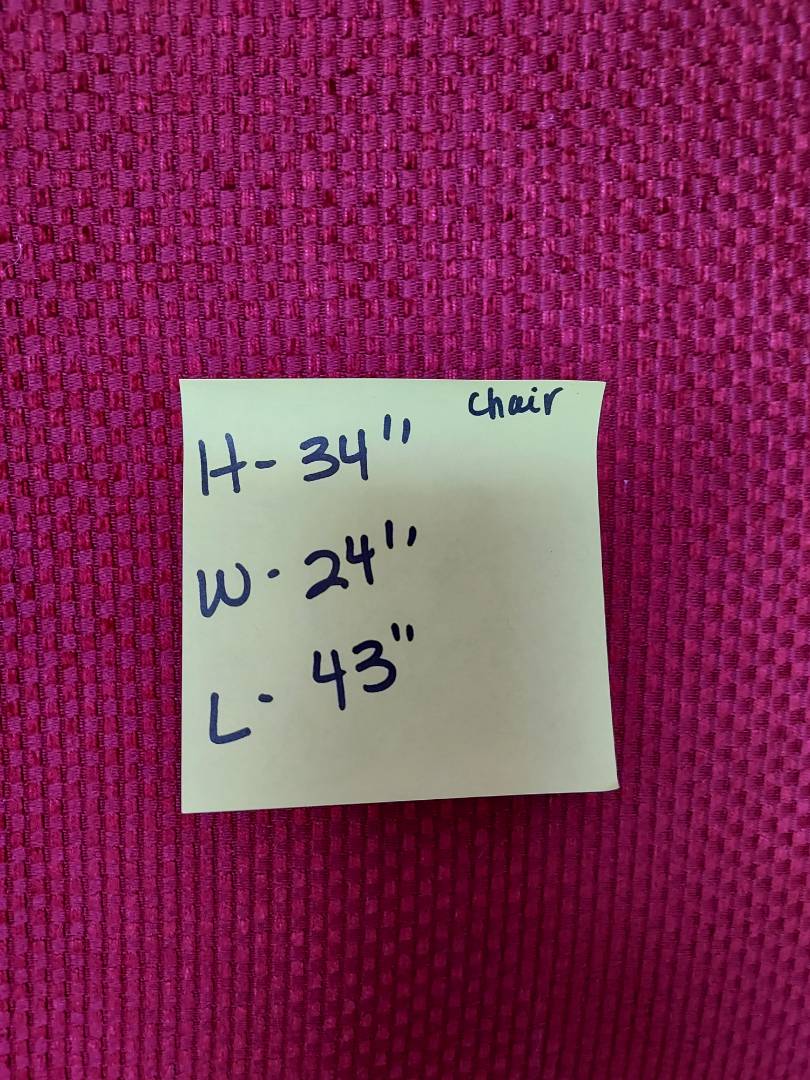 chair
H- 34"
W- 24"
L- 43"